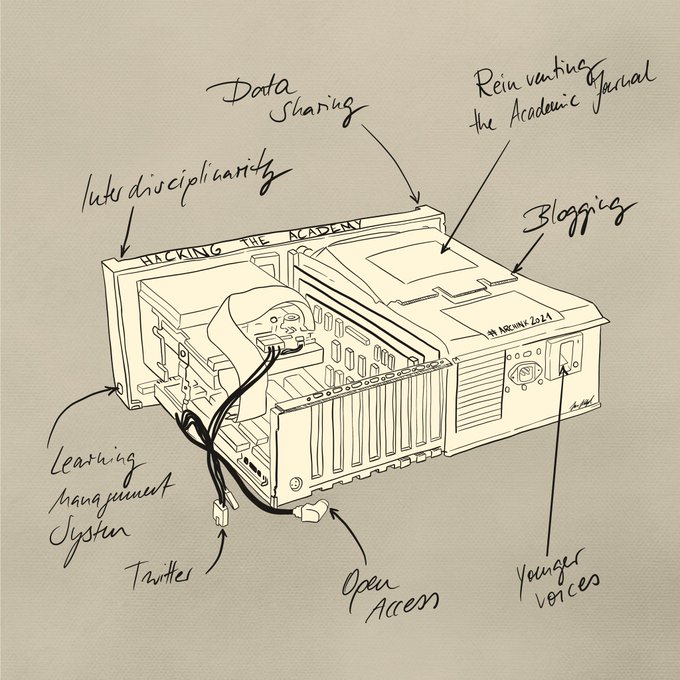 Data
sharing
Reinventing
the Academic Journal
Interdisciplinarity
Blogging
HACKING THE ACADEMY
# ARCHINK 2021
Learning
Management
System
Twitter
Open
Access
Younger
voices